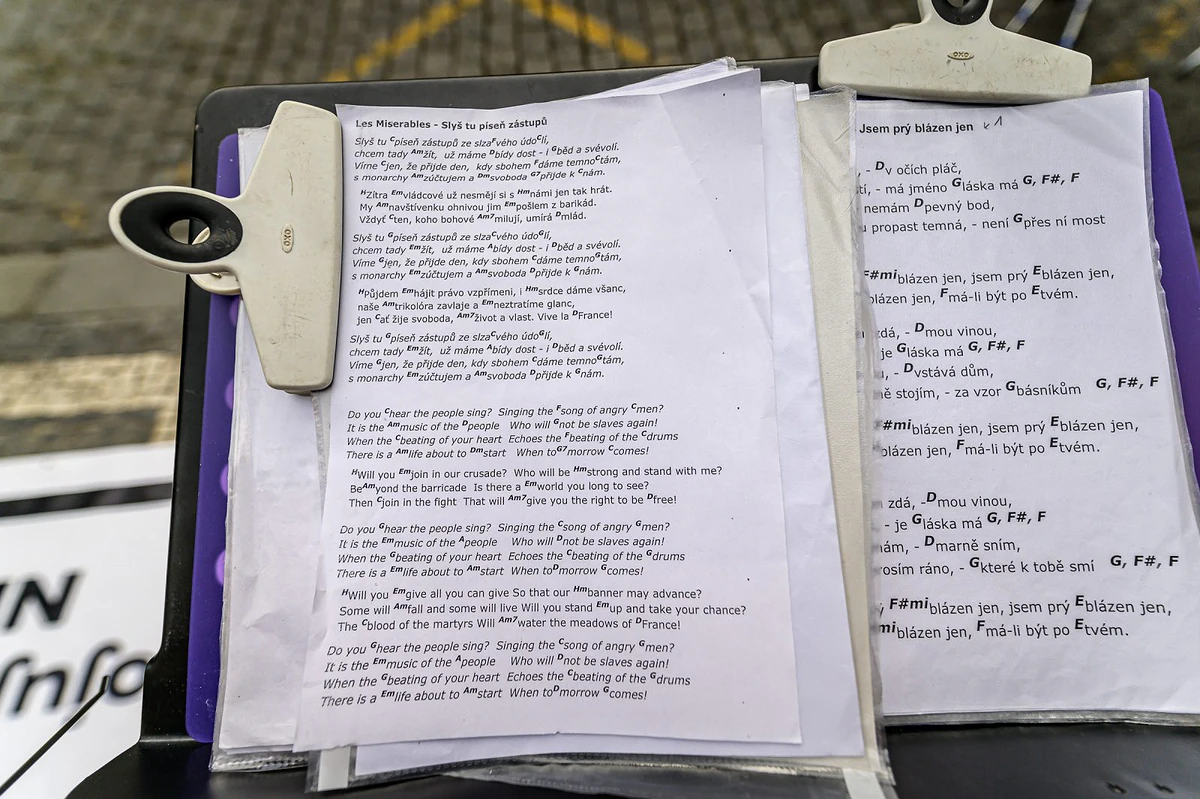 Les Miserables - Slyš tu píseň zástupů
Slyš tu Cpíseň zástupů ze slzaFvého údoClí,
chcem tady Amžít, už máme Dbídy dost - i Gběd a svévolí.
Víme Cjen, že přijde den, kdy sbohem Fdáme temnoCtám,
s monarchy Amzúčtujem a Dmsvoboda G7přijde k Cnám.
HZítra Emvládcové už nesmějí si s Hmnámi jen tak hrát.
My Amnavštívenku ohnivou jim Empošlem z barikád.
Vždyť Cten, koho bohové Am7milují, umírá Dmlád.
Slyš tu Gpíseň zástupů ze slzaCvého údoGlí,
chcem tady Emžít, už máme Abídy dost - i Dběd a svévolí.
Víme Gjen, že přijde den, kdy sbohem Cdáme temnoGtám,
s monarchy Emzúčtujem a Amsvoboda Dpřijde k Gnám.
HPůjdem Emhájit právo vzpřímeni, i Hmsrdce dáme všanc,
naše Amtrikolóra zavlaje a Emneztratíme glanc,
jen Cať žije svoboda, Am7život a vlast. Vive la DFrance!
Slyš tu Gpíseň zástupů ze slzaCvého údoGlí,
chcem tady Emžít, už máme Abídy dost - i Dběd a svévolí.
Víme Gjen, že přijde den, kdy sbohem Cdáme temnoGtám,
s monarchy Emzúčtujem a Amsvoboda Dpřijde k Gnám.
Do you Chear the people sing? Singing the Fsong of angry Cmen?
It is the Ammusic of the Dpeople Who will Gnot be slaves again!
When the Cbeating of your heart Echoes the Fbeating of the Cdrums
There is a Amlife about to Dmstart When toG7morrow Ccomes!
HWill you Emjoin in our crusade? Who will be Hmstrong and stand with me?
BeAmyond the barricade Is there a Emworld you long to see?
Then Cjoin in the fight That will Am7give you the right to be Dfree!
Do you Ghear the people sing? Singing the Csong of angry Gmen?
It is the Emmusic of the Apeople Who will Dnot be slaves again!
When the Gbeating of your heart Echoes the Cbeating of the Gdrums
There is a Emlife about to Amstart When toDmorrow Gcomes!
HWill you Emgive all you can give So that our Hmbanner may advance?
Some will Amfall and some will live Will you stand Emup and take your chance?
The Cblood of the martyrs Will Am7water the meadows of DFrance!
Do you Ghear the people sing? Singing the Csong of angry Gmen?
It is the Emmusic of the Apeople Who will Dnot be slaves again!
When the Gbeating of your heart Echoes the Cbeating of the Gdrums
There is a Emlife about to Amstart When toDmorrow Gcomes!
Jsem prý blázen jen
, - Dv očích pláč,
- má jméno Gláska má G, F#, F
nemám Dpevný bod,
propast temná, - není Gpřes ní most
F#miblázen jen, jsem prý Eblázen jen,
blázen jen, Fmá-li být po Etvém.
zdá, - Dmou vinou,
je Gláska má G, F#, F
, - Dvstává dům,
stojím, - za vzor Gbásníkům G, F#, F
#miblázen jen, jsem prý Eblázen jen,
blázen jen, Fmá-li být po Etvém.
zdá, - Dmou vinou,
- je Gláska má G, F#, F
- Dmarně sním,
ráno, - Gkteré k tobě smí G, F#, F
F#miblázen jen, jsem prý Eblázen jen,
miblázen jen, Fmá-li být po Etvém.
OXO
OXO